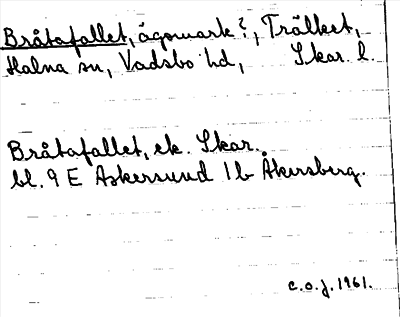 Bråtafallet, ägomark?, Trälket,
Halna sn, Vadsbo hd, Skar. l.
Bråtafallet, ek. Skar.
bl. 9 E Askersund 1b Åkersberg.
c.o.j. 1961.